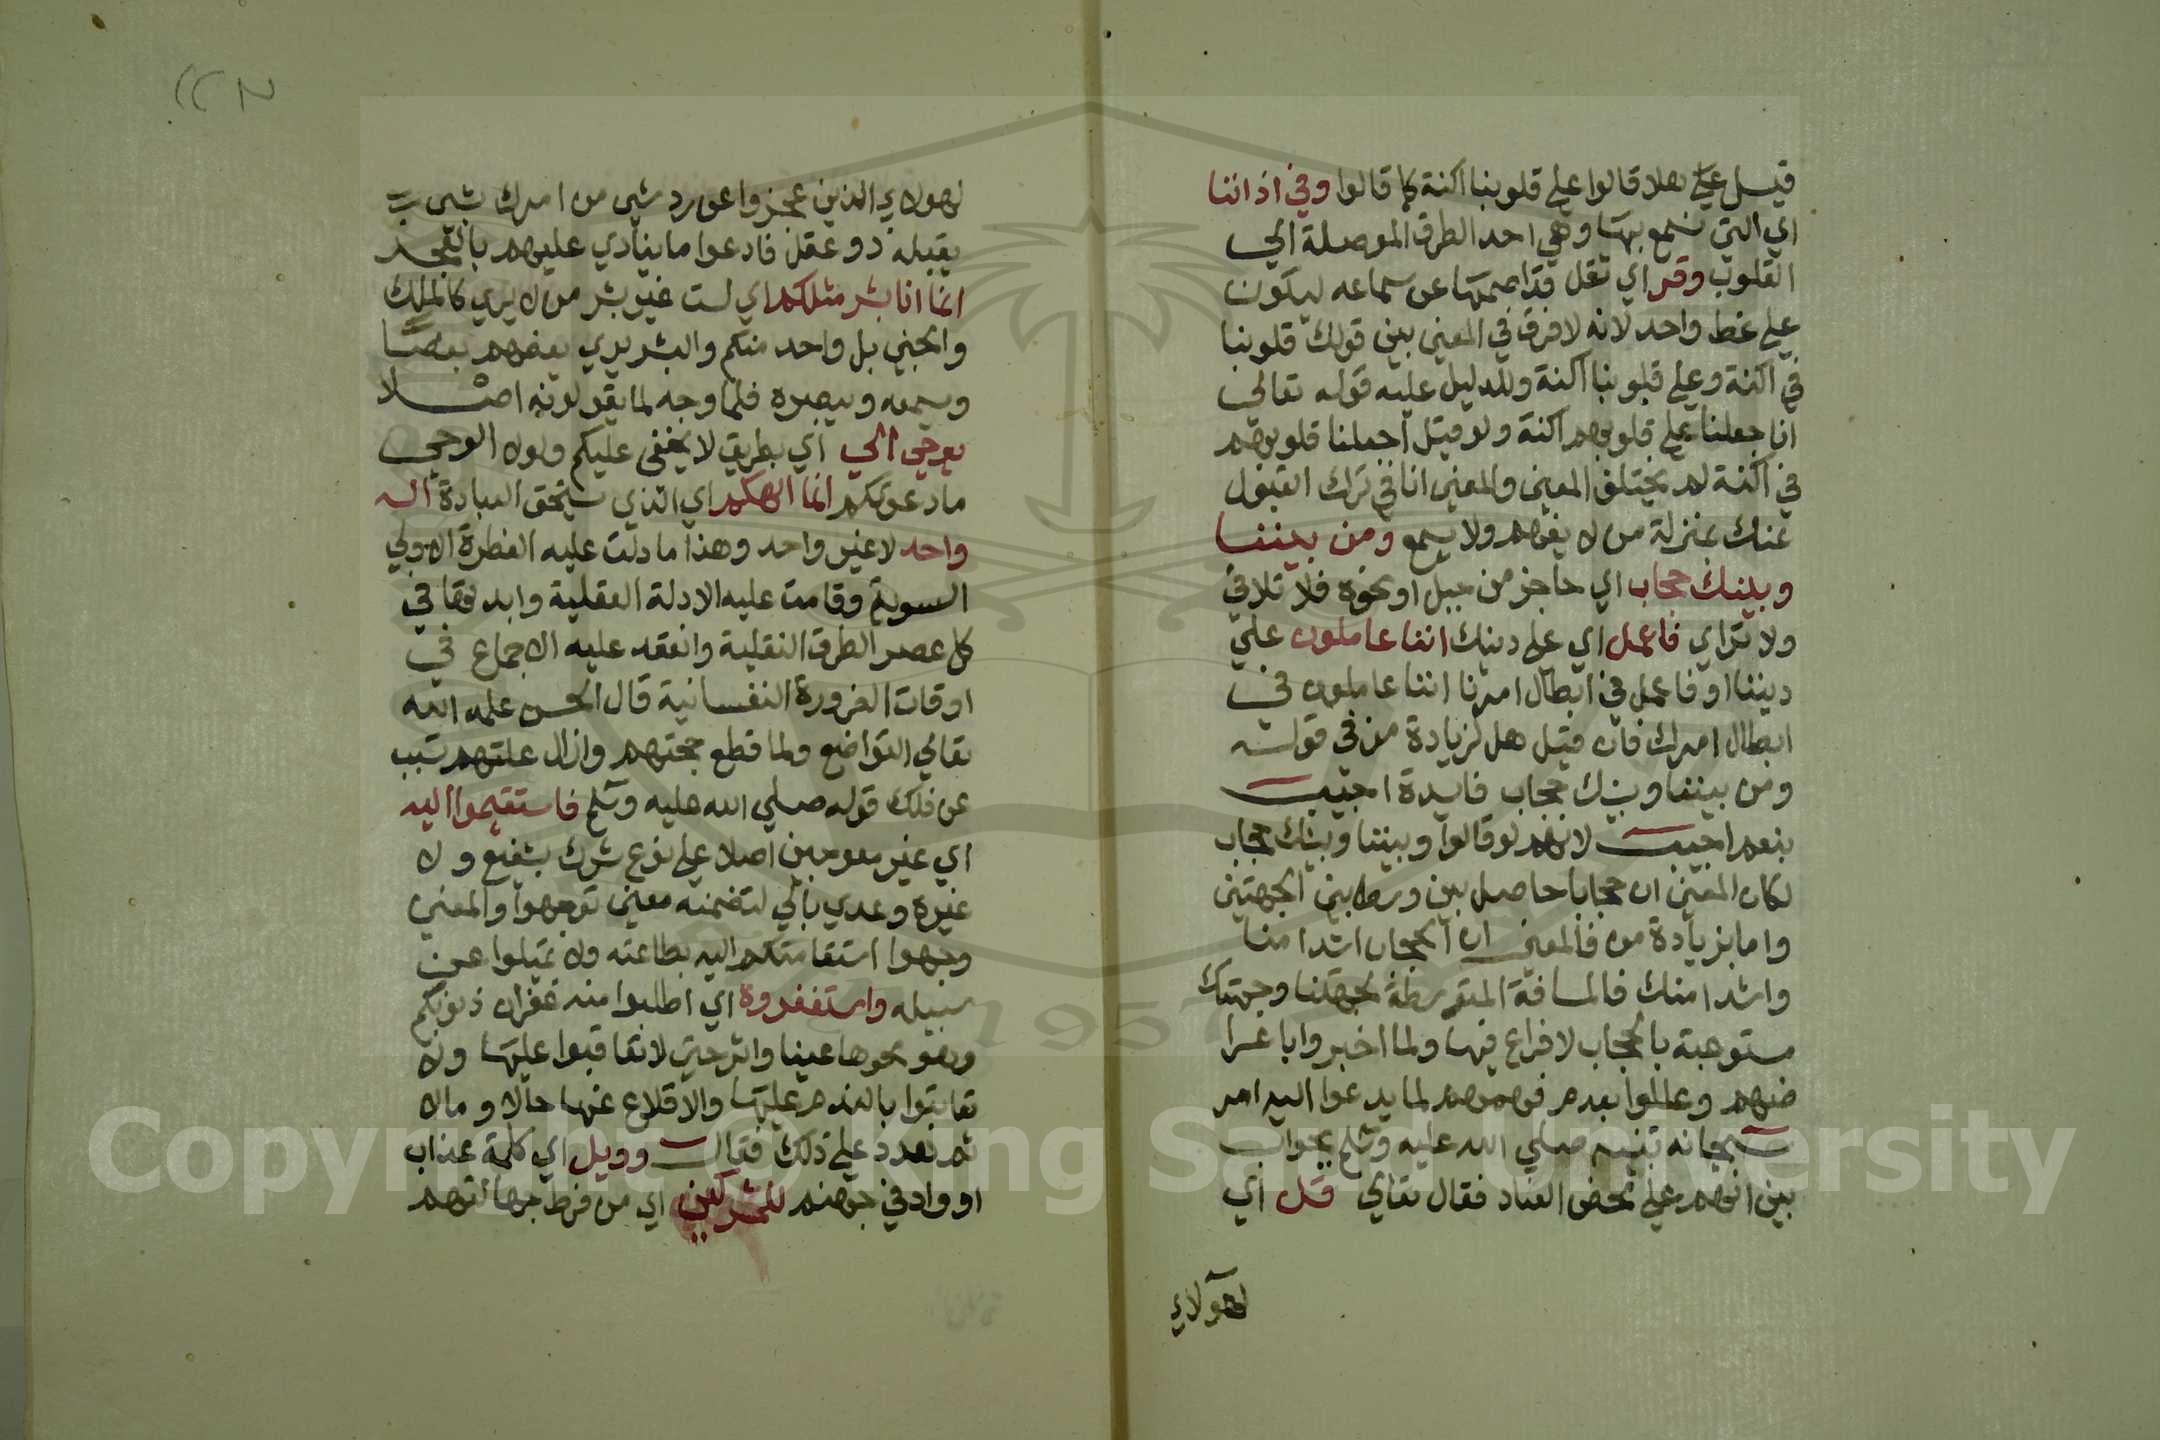 قيل على هلا قالوا على قلوبنا اكنة كما قالوا وفي اذاننا
اي التي نسمع بها وهي احد الطرق الموصلة الي
القلوب وقر اي ثقل قد اصمها عن سماعه ليكون
على نمط واحد لانه لا فرق في المعني بين قولك قلوبنا
في اكنة وعلي قلوبنا اكنة والدليل عليه قوله تعالي
انا جعلنا علي قلوبهم اكنة ولو قيل اجعلنا قلوبهم
في اكنة لم يختلف المعني والمعني انا في ترك القبول
عنك بمنزلة من لا يفهم ولا يسمع ومن بيننا
وبينك حجاب اي حاجز من جبل او نحوه فلا تلاقي
ولا تراي فاعمل اي على دينك اننا عاملون علي
ديننا او فاعمل في ابطال امرنا اننا عاملون في
ابطال امرك فان قيل هل لزيادة من في قوله
ومن بيننا وبينك حجاب فايدة اجيب
بنعم اجيب لانهم لو قالوا وبيننا وبينك حجاب
لكان المعني ان حجابا حاصل بين وسط بين الجهتين
واما بزيادة من فالمعني ان الحجاب ابتدا منا
وابتدا منك فالمسافة المتوسطة لجهتنا وجهتك
مستوعبة بالحجاب لا فراغ فيها ولما اخبروا باعرا
ضهم وعللوا بعدم فهمهم لما يدعوا اليه امر
سبحانه نبيه صلي الله عليه وسلم بجواب
بين انهم علي محض العناد فقال تعالي قل اي
لهولاء
لهولاي الذين عجزوا عن رد شي من امرك بشي
يقبله ذو عقل فادعوا ما ينادي عليهم بالعجز
انما انا بشر مثلكم اي لست غير بشر من لا يري كالملك
والجني بل واحد منكم والبشر يري بعضهم بعضا
ويسمعه ويبصره فلما وجه لما يقولونه اصلا
يوحي الي اي بطريق لا يخفي عليكم ولولا الوحي
ما دعوتكم انما الهكم اي الذي يستحق العبادة اله
واحد لا غير واحد وهذا ما دلت عليه الفطرة الاولي
السوية وقامت عليه الادلة العقلية وايدتها في
كل عصر الطرق النقلية وانعقد عليه الاجماع في
اوقات الضرورة النفسانية قال الحسن علمه الله
تعالي التواضع ولما قطع حجتهم وازال علتهم تسبب
عن ذلك قوله صلي الله عليه وسلم فاستقيموا اليه
اي غير معوجين اصلا علي نوع شرك بشفيع ولا
غيره وعدي بالي لتضمنه معني توجهوا والمعني
وجهوا استقامتكم اليه بطاعته ولا تميلوا عن
سبيله واستغفروه اي اطلبوا منه غفران ذنوبكم
وهو محوها عينا واثر حتي لا تعاقبوا عليها ولا
تعاتبوا بالندم عليها والاقلاع عنها حالا ومالا
ثم هدد علي ذلك فقال وويل اي كلمة عذاب
او واد في جهنم للمشركين اي من فرط جهالتهم